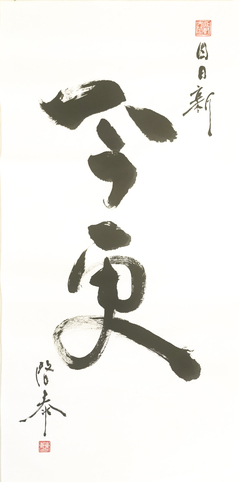 日日新
今更
隆泰